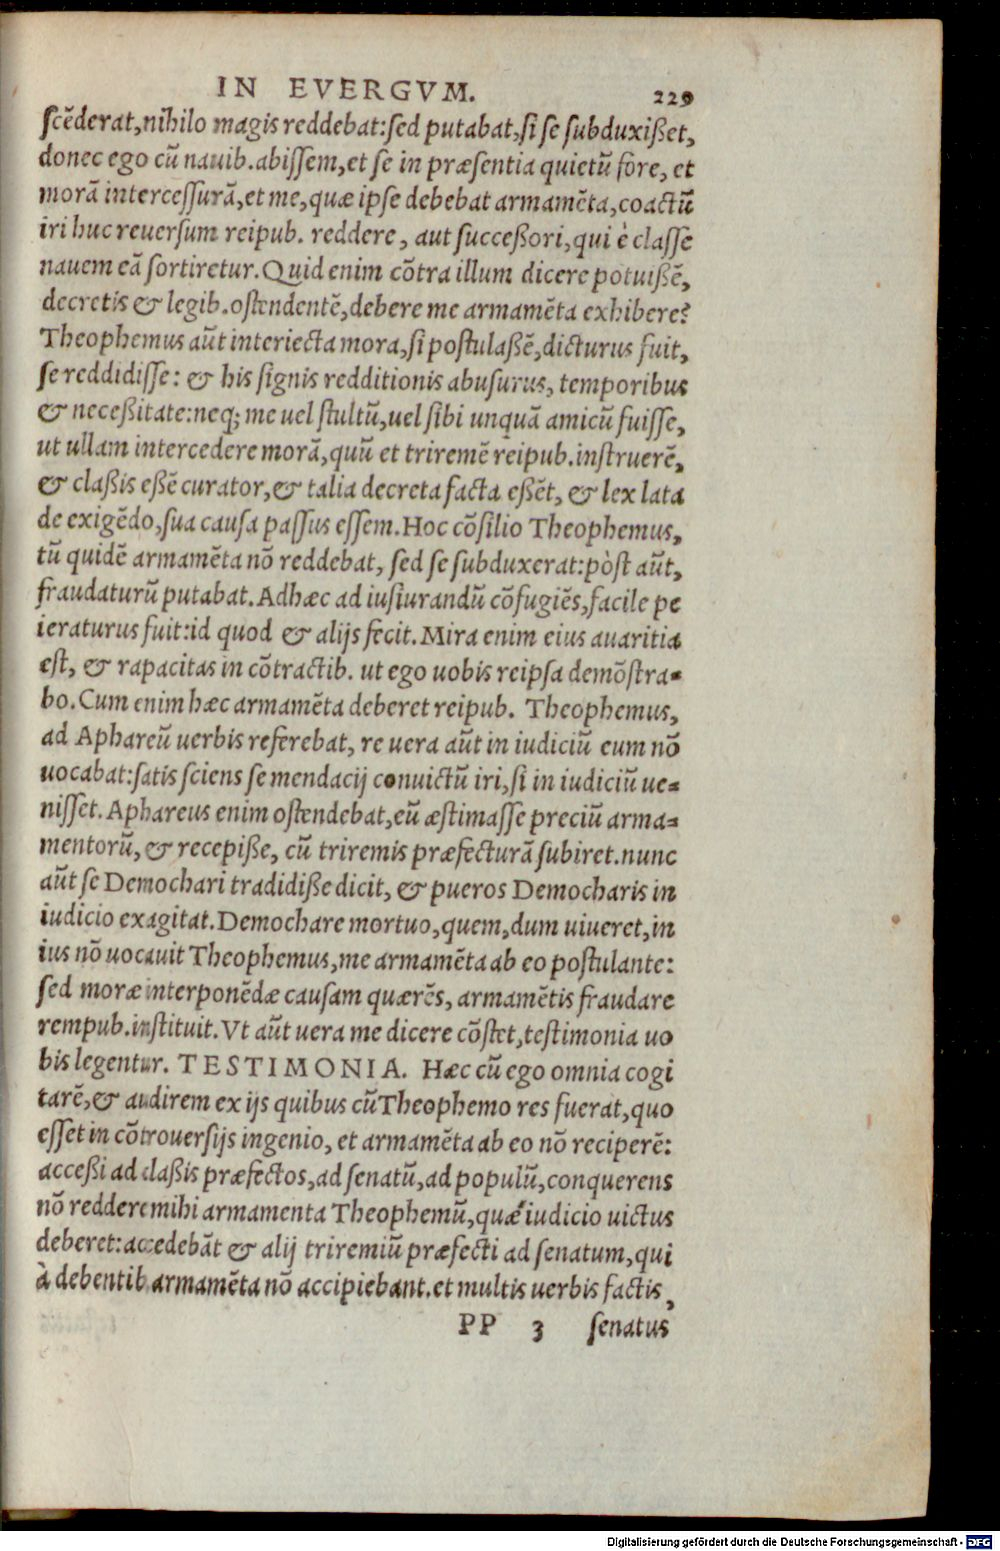 IN EVERGVM. 229
scẽderat,nihilo magis reddebat:sed putabat,si se subduxißet,
donec ego cũ nauib.abissem,et se in præsentia quietũ fore, et
morã intercessurã,et me,quæ ipse debebat armamẽta,coactũ
iri huc reuersum reipub. reddere, aut succeßori,qui è classe
nauem eã sortiretur.Quid enim cõtra illum dicere potuißẽ,
decretis & legib.ostendentẽ,debere me armamẽta exhibere?
Theophemus aũt interiecta mora,si postulaßẽ,dicturus fuit,
se reddidisse: & his signis redditionis abusurus, temporibus
& neceßitate:neq; me uel stultũ,uel sibi unquã amicũ fuisse,
ut ullam intercedere morã,quũ et triremẽ reipub.instruerẽ,
& claßis eßẽ curator,& talia decreta facta eßẽt, & lex lata
de exigẽdo,sua causa passus essem.Hoc cõsilio Theophemus,
tũ quidẽ armamẽta nõ reddebat, sed se subduxerat:pòst aũt,
fraudaturũ putabat.Adhæc ad iusiurandũ cõfugiẽs,facile pe
ieraturus fuit:id quod & alijs fecit.Mira enim eius auaritia
est, & rapacitas in cõtractib. ut ego uobis reipsa demõstra-
bo.Cum enim hæc armamẽta deberet reipub. Theophemus,
ad Aphareũ uerbis referebat, re uera aũt in iudiciũ eum nõ
uocabat:satis sciens se mendacij conuictũ iri,si in iudiciũ ue-
nisset.Aphareus enim ostendebat,eũ æstimasse preciũ arma-
mentorũ,& recepiße, cũ triremis præfecturã subiret.nunc
aũt se Demochari tradidiße dicit, & pueros Democharis in
iudicio exagitat.Demochare mortuo,quem,dum uiueret,in
ius nõ uocauit Theophemus,me armamẽta ab eo postulante:
sed moræ interponẽdæ causam quærẽs, armamẽtis fraudare
rempub.instituit.Vt aũt uera me dicere cõstet,testimonia uo
bis legentur. TESTIMONIA. Hæc cũ ego omnia cogi
tarẽ,& audirem ex ijs quibus cũ Theophemo res fuerat,quo
esset in cõtrouersijs ingenio, et armamẽta ab eo nõ reciperẽ:
acceßi ad claßis præfectos,ad senatũ,ad populũ,conquerens
nõ reddere mihi armamenta Theophemũ,quæ iudicio uictus
deberet:accedebãt & alij triremiũ præfecti ad senatum,qui
à debentib.armamẽta nõ accipiebant.et multis uerbis factis,
PP 3 senatus
Digitalisierung gefördert durch die Deutsche Forschungsgemeinschaft - DFG